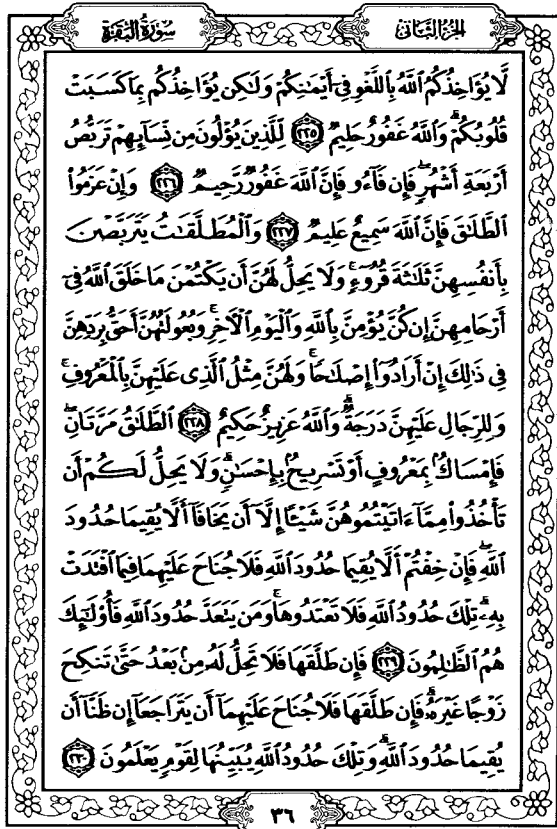 سُورَةُ البَقَرَةِ
الجُزْءُ الثَّانِي
لَّا يُؤَاخِذُكُمُ ٱللَّهُ بِٱللَّغْوِ فِىٓ أَيْمَٰنِكُمْ وَلَٰكِن يُؤَاخِذُكُم بِمَا كَسَبَتْ
قُلُوبُكُمْ ۗ وَٱللَّهُ غَفُورٌ حَلِيمٌ ٢٢٥ لِّلَّذِينَ يُؤْلُونَ مِن نِّسَآئِهِمْ تَرَبُّصُ
أَرْبَعَةِ أَشْهُرٍ ۖ فَإِن فَآءُو فَإِنَّ ٱللَّهَ غَفُورٌ رَّحِيمٌ ٢٢٦ وَإِنْ عَزَمُوا۟
ٱلطَّلَٰقَ فَإِنَّ ٱللَّهَ سَمِيعٌ عَلِيمٌ ٢٢٧ وَٱلْمُطَلَّقَٰتُ يَتَرَبَّصْنَ
بِأَنفُسِهِنَّ ثَلَٰثَةَ قُرُوٓءٍ ۚ وَلَا يَحِلُّ لَهُنَّ أَن يَكْتُمْنَ مَا خَلَقَ ٱللَّهُ فِىٓ
أَرْحَامِهِنَّ إِن كُنَّ يُؤْمِنَّ بِٱللَّهِ وَٱلْيَوْمِ ٱلْءَاخِرِ ۚ وَبُعُولَتُهُنَّ أَحَقُّ بِرَدِّهِنَّ
فِى ذَٰلِكَ إِنْ أَرَادُوٓا۟ إِصْلَٰحًا ۚ وَلَهُنَّ مِثْلُ ٱلَّذِى عَلَيْهِنَّ بِٱلْمَعْرُوفِ ۚ
وَلِلرِّجَالِ عَلَيْهِنَّ دَرَجَةٌ ۗ وَٱللَّهُ عَزِيزٌ حَكِيمٌ ٢٢٨ ٱلطَّلَٰقُ مَرَّتَانِ ۖ
فَإِمْسَاكٌۢ بِمَعْرُوفٍ أَوْ تَسْرِيحٌۢ بِإِحْسَٰنٍ ۗ وَلَا يَحِلُّ لَكُمْ أَن
تَأْخُذُوا۟ مِمَّآ ءَاتَيْتُمُوهُنَّ شَيْـًٔا إِلَّآ أَن يَخَافَآ أَلَّا يُقِيمَا حُدُودَ
ٱللَّهِ ۖ فَإِنْ خِفْتُمْ أَلَّا يُقِيمَا حُدُودَ ٱللَّهِ فَلَا جُنَاحَ عَلَيْهِمَا فِيمَا ٱفْتَدَتْ
بِهِۦ ۗ تِلْكَ حُدُودُ ٱللَّهِ فَلَا تَعْتَدُوهَا ۚ وَمَن يَتَعَدَّ حُدُودَ ٱللَّهِ فَأُو۟لَٰٓئِكَ
هُمُ ٱلظَّٰلِمُونَ ٢٢٩ فَإِن طَلَّقَهَا فَلَا تَحِلُّ لَهُۥ مِنۢ بَعْدُ حَتَّىٰ تَنكِحَ
زَوْجًا غَيْرَهُۥ ۗ فَإِن طَلَّقَهَا فَلَا جُنَاحَ عَلَيْهِمَآ أَن يَتَرَاجَعَآ إِن ظَنَّآ أَن
يُقِيمَا حُدُودَ ٱللَّهِ ۗ وَتِلْكَ حُدُودُ ٱللَّهِ يُبَيِّنُهَا لِقَوْمٍ يَعْلَمُونَ ٢٣٠
٣٦